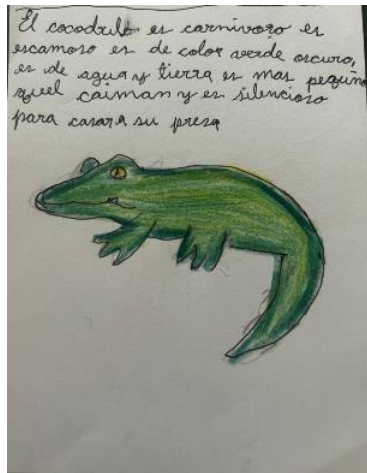 El cocodrilo es carnivoro es
escamoso es de color verde oscuro,
es de agua y tierra es mas pequino
quel caiman y es silencioso
para casar a su presa